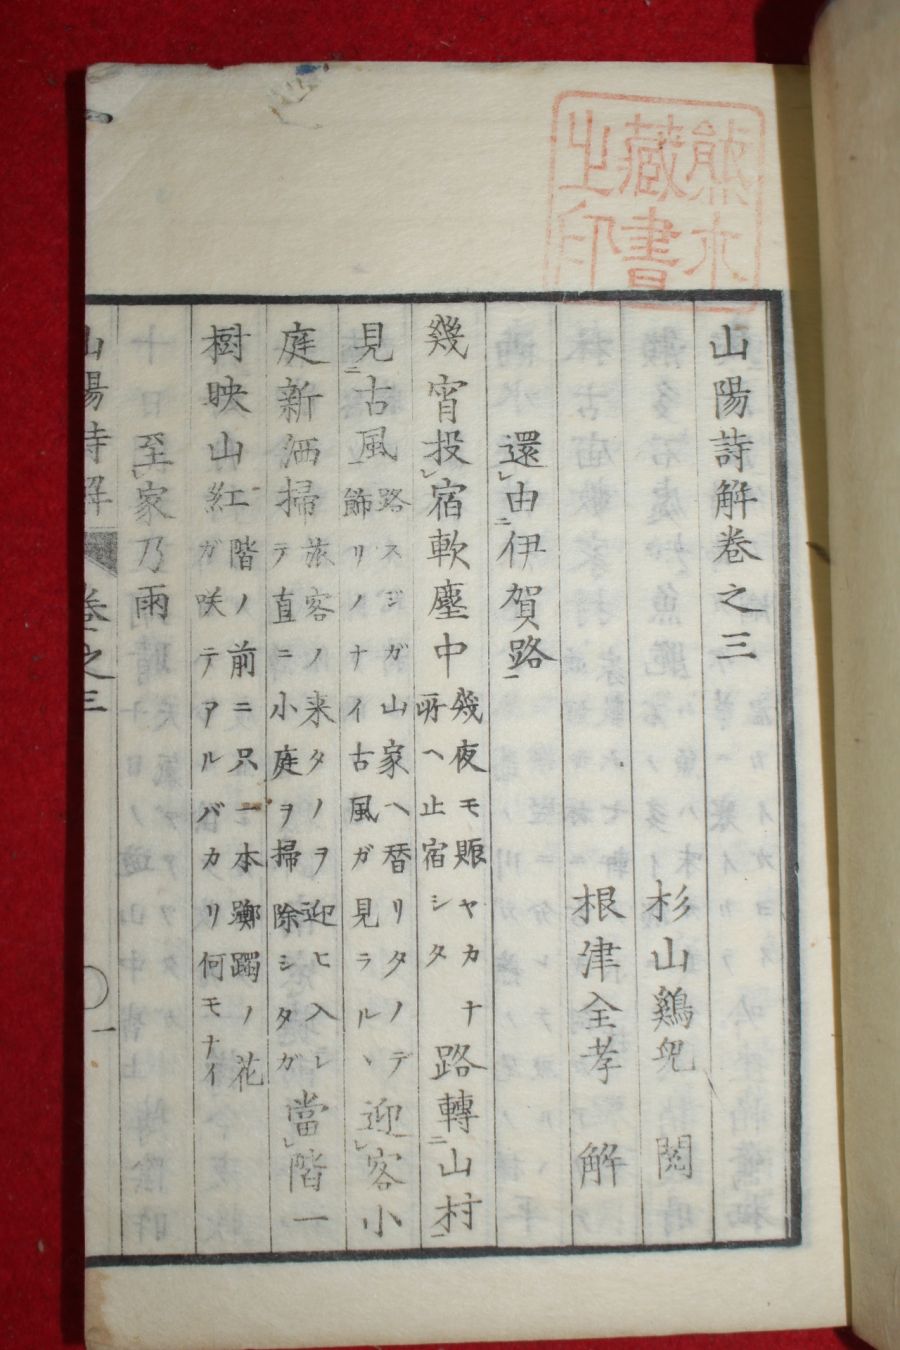 熊木
藏書
之印
山陽詩解卷之三
杉山鷄兒　閲
根津全孝　解
還レ由二伊賀路一
幾宵投レ宿軟塵中 幾夜モ賑ヤカナ所ヘ止宿シタ 路轉二山村一
見二古風一 路スジガ山家ヘ替リタノデ飾リノナイ古風ガ見ラルヽ 迎レ客小
庭新洒掃 旅客ノ来タノヲ迎ヒ入レテ直ニ小庭ヲ掃除シタガ 當レ階一
樹映山紅 階ノ前ニ只一本躑躅ノ花ガ咲テアルバカリ何モナイ
至レ家乃雨
山陽詩解 卷之三 一